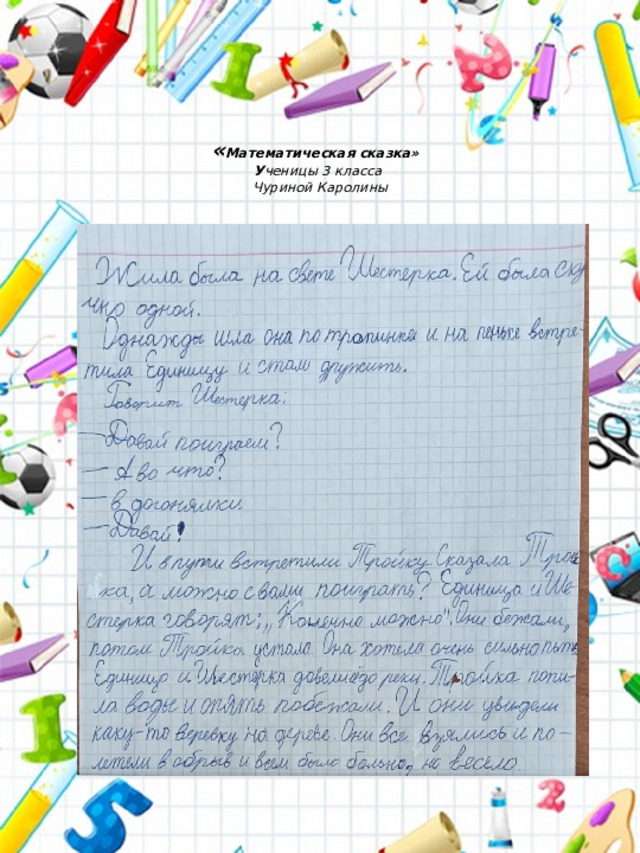 «Математическая сказка»
Ученицы 3 класса
Чуриной Каролины
Жила была на свете Шестерка. Ей была ску
чно одной.
Однажды шла она по тропинке и на пеньке встре-
тила Единицу и стали дружить.
Говорит Шестерка:
— Давай поиграем?
— А во что?
— в догонялки.
— Давай!
И в пути встретили Тройку. Сказала Трой
ка, а можно с вами поиграть? Единица и Ше-
стерка говорят: „Конечно можно". Они бежали,
потом Тройка устала. Она хотела очень сильно пить
Единица и Шестерка довели её до реки. Тройка попи-
ла воды и опять побежали. И они увидели
каку-то веревку на дереве. Они все взялись и по-
летели в обрыв и всем было больно, но весело.